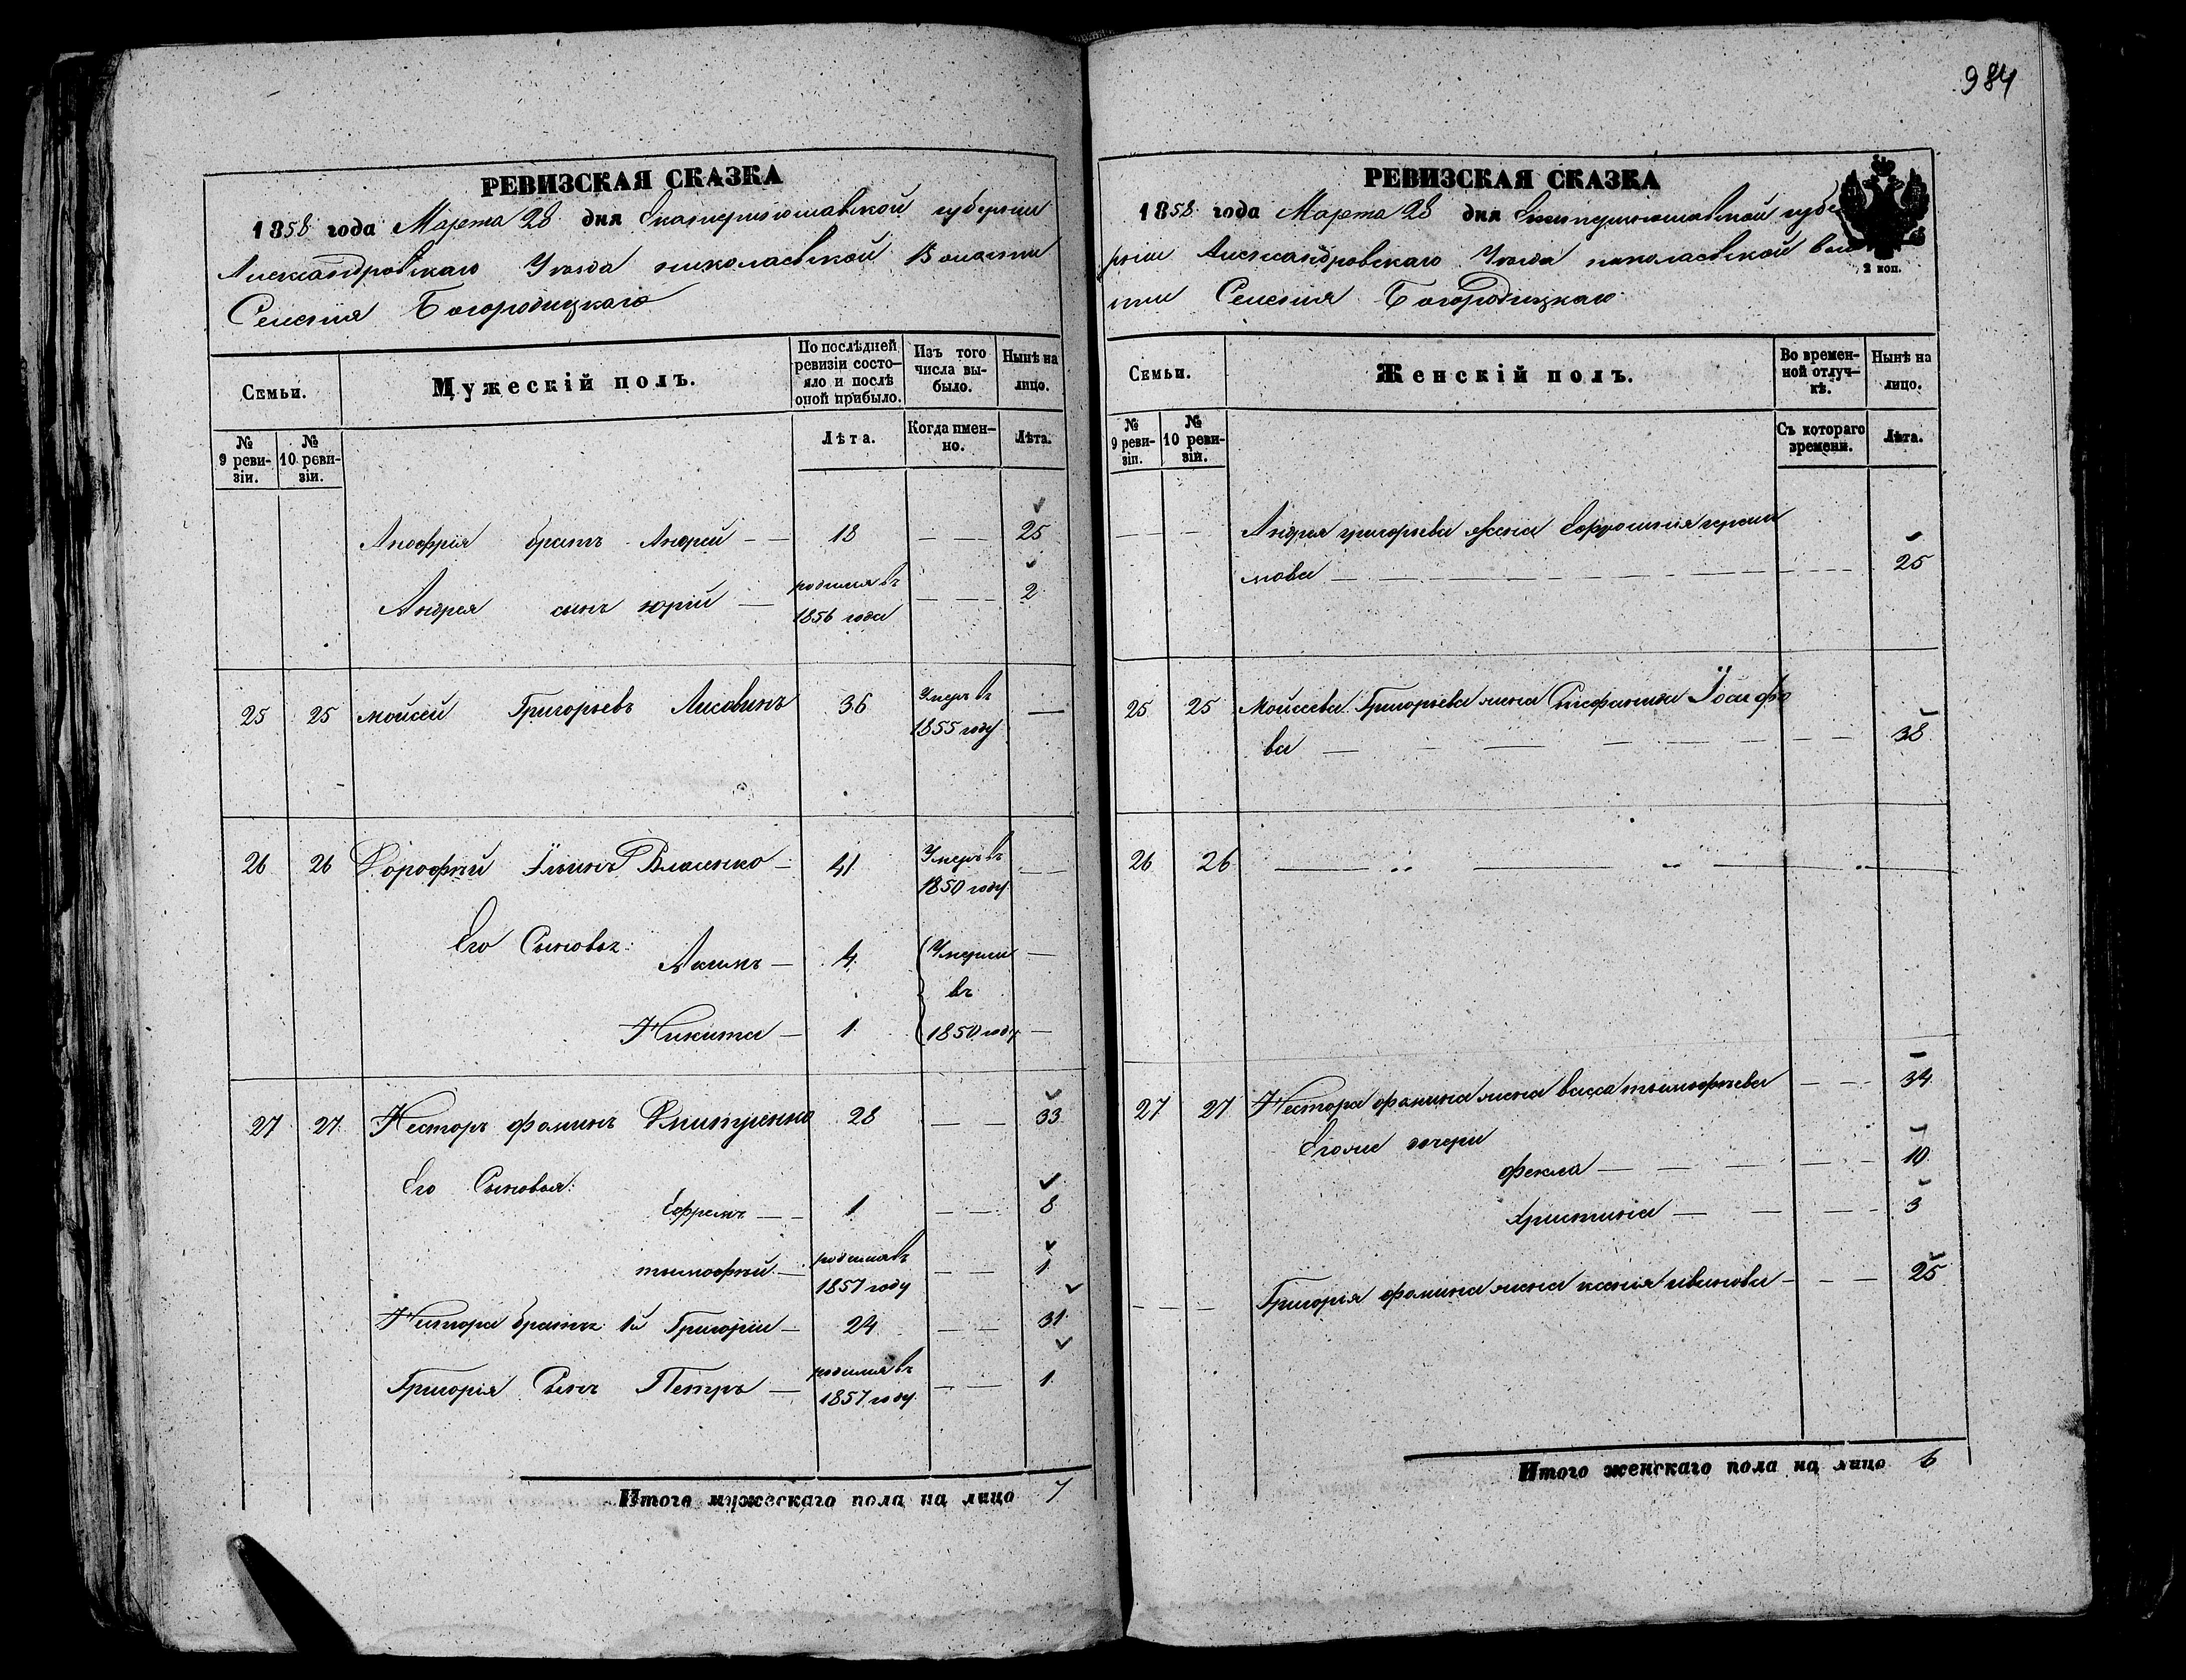 984
РЕВИЗСКАЯ СКАЗКА
1858 года Марта 28 дня Екатеринославской губернии
Александровскаго Уезда николаевской Волости
Селения Богородицкаго
Семьи. Мужескій полъ. По послѣдней ревизіи состояло и послѣ оной прибыло. Изъ того числа выбыло. Нынѣ на лицо.
№ 9 ревизіи. № 10 ревизіи. Лѣта. Когда именно. Лѣта.
Анофрія братъ Андрей — — 18 — — 25
Андрея сынъ юрій — родился въ 1856 года — — 2
25 25 моисей Григорьевъ Лисовинъ 36 Умеръ въ 1855 году —
26 26 Дорофѣй Ильинъ Власенко — 41 Умеръ въ 1850 году —
Его Сыновья:
Акимъ — 4 Умерли —
въ
Никита — 1 1850 году —
27 27 Несторъ фоминъ Дмитренко 28 — — 33
Его Сыновья:
Ефремъ — — 1 — — 8
тимофѣй — родился въ 1857 году — — 1
Нестора братья 1й Григорий — 24 — — 31
Григорія Сынъ Петръ — родился въ 1857 году — — 1
Итого мужескаго пола на лицо 7
РЕВИЗСКАЯ СКАЗКА
1858 года Марта 28 дня Екатеринославской губе
рнии Александровскаго Уезда николаевской воло
сти Селения Богородицкаго
2 коп.
Семьи. Женскій полъ. Во временной отлучкѣ. Нынѣ на лицо.
№ 9 ревизіи. № 10 ревизіи. Съ котораго времени. Лѣта.
Андрея григорьева жена Ефросиния гераси
мова — 25
25 25 Моисеева Григорьева жена Стефанида Іосифо
ва — 38
26 26 — „ — „ —
27 27 Нестора фомина жена васса тимофѣева — — 34
Егоже дочери
фекла — — — — 10
христина — — — — 3
Григорія фомина жена ксения иванова — — — 25
Итого женскаго пола на лицо 6